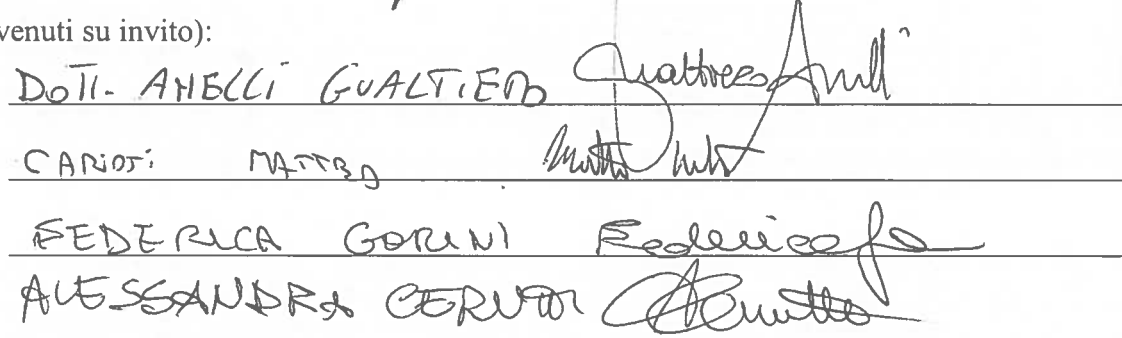 venuti su invito):
DOTT. ANELLI GUALTIERO Gualtiero Anelli
MATTEO
FEDERICA GORINI Federica
ALESSANDRA CERUTTI